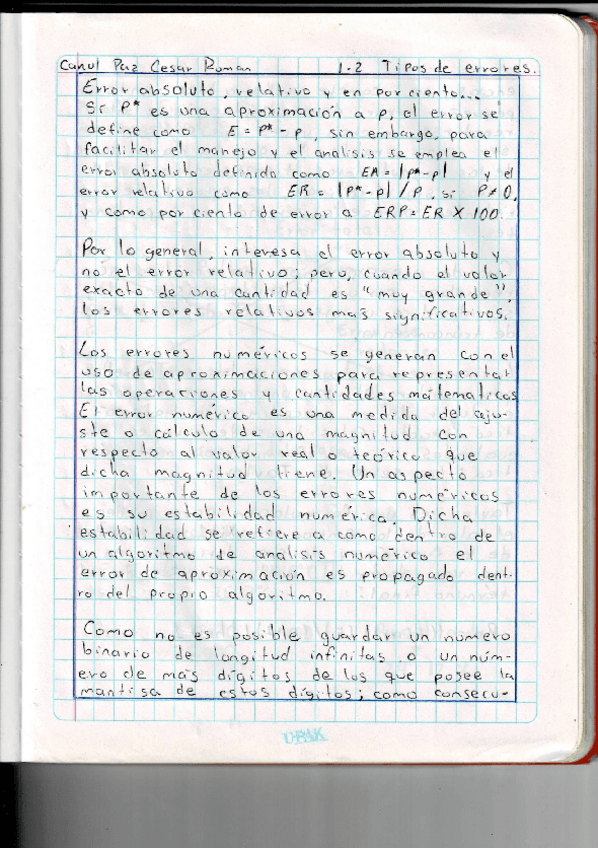 Canul Paz Cesar Roman 1-2 Tipos de errores.
Error absoluto, relativo y en por ciento...
Si P* es una aproximación a p, el error se
define como E = P* - p, sin embargo, para
facilitar el manejo y el analisis se emplea el
error absoluto definido como EA = |p*-p| y el
error relativo como ER = |p*-p| / P, si P≠0,
y como por ciento de error a ERP = ER X 100.
Por lo general, interesa el error absoluto y
no el error relativo; pero, cuando el valor
exacto de una cantidad es "muy grande",
los errores relativos mas significativos.
Los errores numéricos se generan con el
uso de aproximaciones para representar
las operaciones y cantidades matematicas
El error numérico es una medida del aju-
ste o cálculo de una magnitud con
respecto al valor real o teórico que
dicha magnitud tiene. Un aspecto
importante de los errores numéricos
es su estabilidad numérica. Dicha
estabilidad se refiere a como dentro de
un algoritmo de analisis numérico el
error de aproximación es propagado dent-
ro del propio algoritmo.
Como no es posible guardar un numero
binario de longitud infinitas o un núm-
ero de más dígitos de los que posee la
mantisa de estos dígitos; como consecu-
UPAK